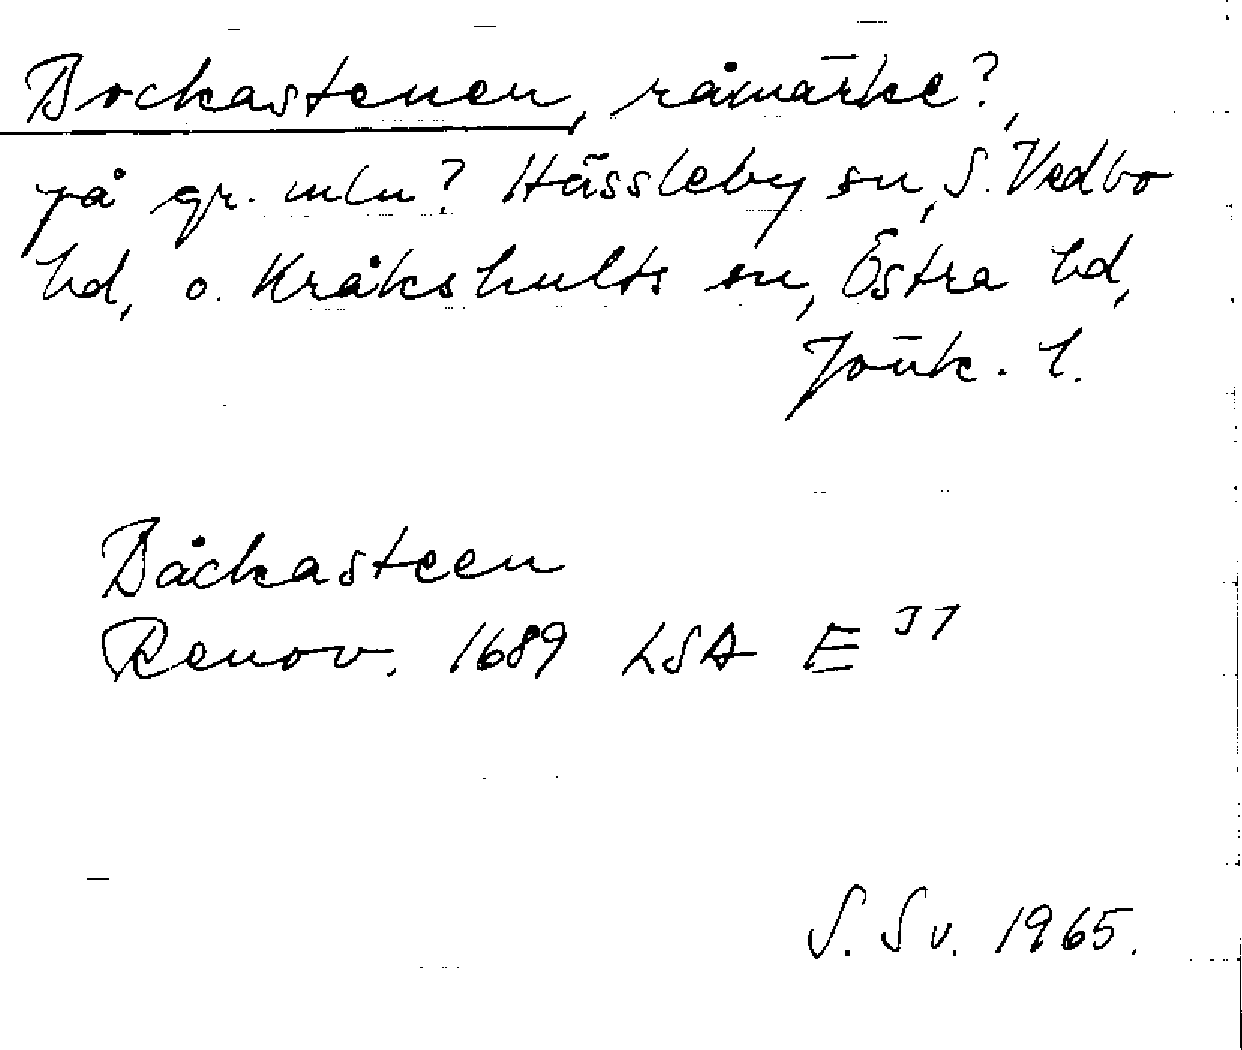 Bockastenen, råmärke?,
på gr. mln? Hässleby sn, S. Vedbo
hd, o. Kråkshults sn, Östra hd,
Jönk. l.
Båckasteen
Renov. 1689 LSA E
S. Sv. 1965.